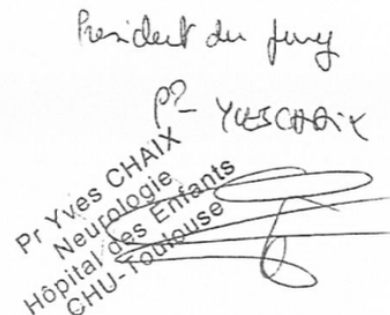 President du jury
Pr YVES CHAIX
Pr Yves CHAIX
Neurologie
Hôpital des Enfants
CHU-Toulouse